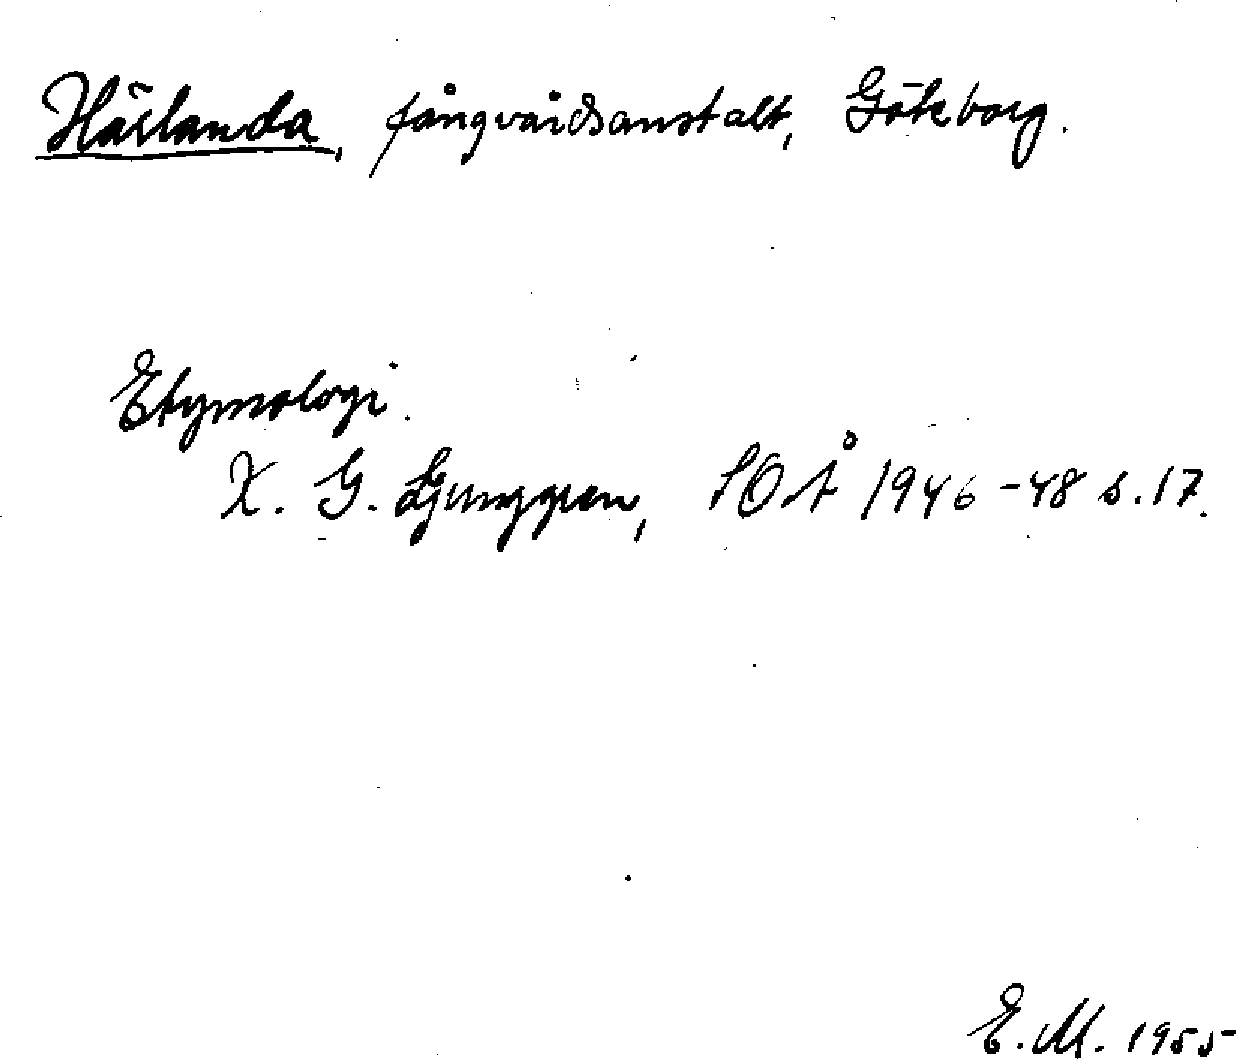 Härlanda, fångvårdsanstalt, Göteborg.
Etymologi.
K. G. Ljunggren, SOÅ 1946-48 s. 17.
E. M. 1955